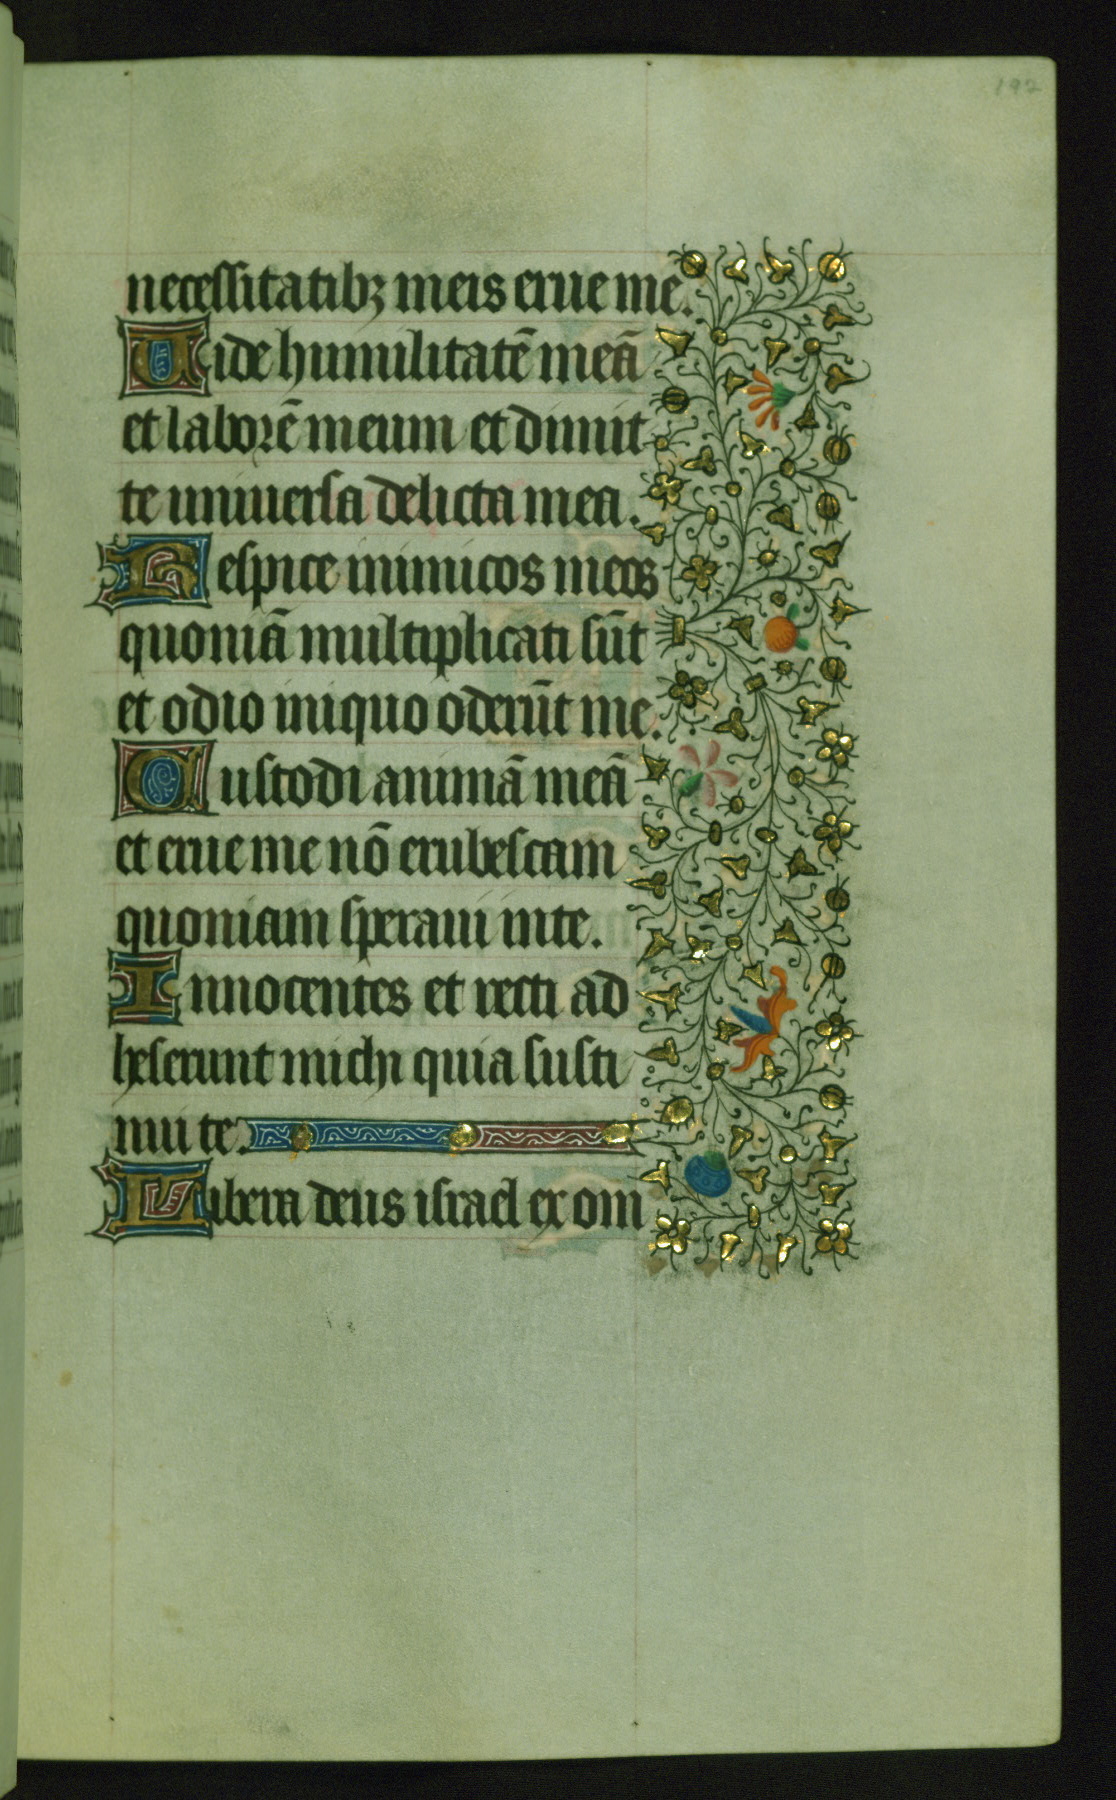 192
necessitatibꝫ meis erue me.
Vide humilitatē meā
et laborē meum et dimit
te uniuersa delicta mea.
Respice inimicos meos
quoniā multiplicati sūt
et odio iniquo oderūt me.
Custodi animā meā
et erue me nō erubescam
quoniam speraui inte.
Innocentes et recti ad
heserunt michi quia susti
nui te.
Libera deus israel ex om